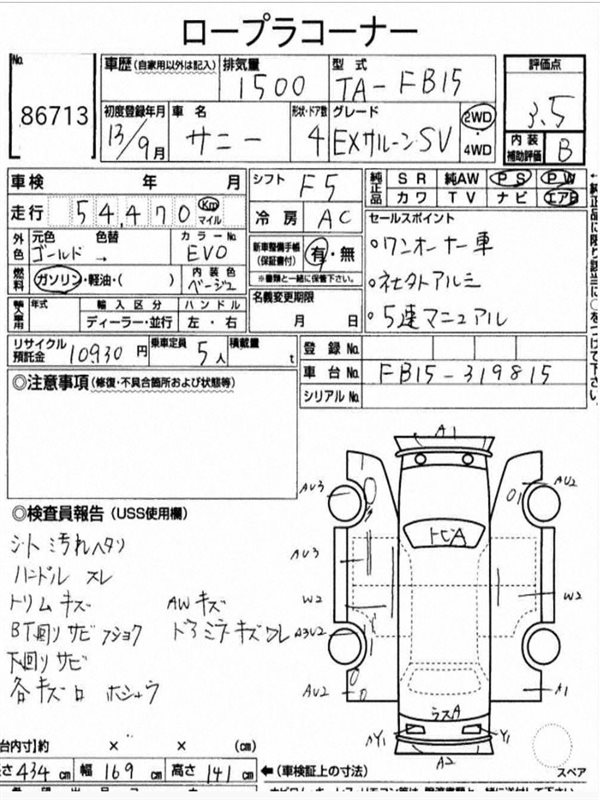 ロープラコーナー
No. 86713
車歴(自家用以外は記入) 排気量 1500 型式 TA-FB15 評価点 3.5
初度登録年月 13/9月 車名 サニー 形状・ドア数 4 グレード EXサルーンSV 2WD・4WD 内装補助評価 B
車検 年 月 シフト F5 純正品 SR 純AW PS PW
カワ TV ナビ エアB
走行 54,470 Km マイル 冷房 AC セールスポイント
外色 元色 ゴールド 色替 → カラーNo. EVO 新車整備手帳(保証書付) 有・無 ※書類と一緒に保管下さい。
○ワンオーナー車
燃料 ガソリン・軽油・( ) 内装色 ベージュ
○社外アルミ
輸入車用 年式 輸入区分 ディーラー・並行 ハンドル 左・右 名義変更期限 月 日
○5速マニュアル
リサイクル預託金 10930円 乗車定員 5人 積載量 t 登録No.
車台No. FB15-319815
シリアルNo.
◎注意事項(修復・不具合箇所および状態等)
A1
AU3 AU2
◎検査員報告(USS使用欄)
シート汚れヘタリ トビA
ハンドル スレ AU3
トリムキズ AWキズ W2 W2
BT回リサビフショク ドアミラーキズワレ A3U2
下回リサビ
各キズロ ホシュウ AU2 A1
ラスA
AY1 Y1
A2
台内寸)約 × × (cm)
長さ 434 cm 幅 169 cm 高さ 141 cm ←(車検証上の寸法) スペア